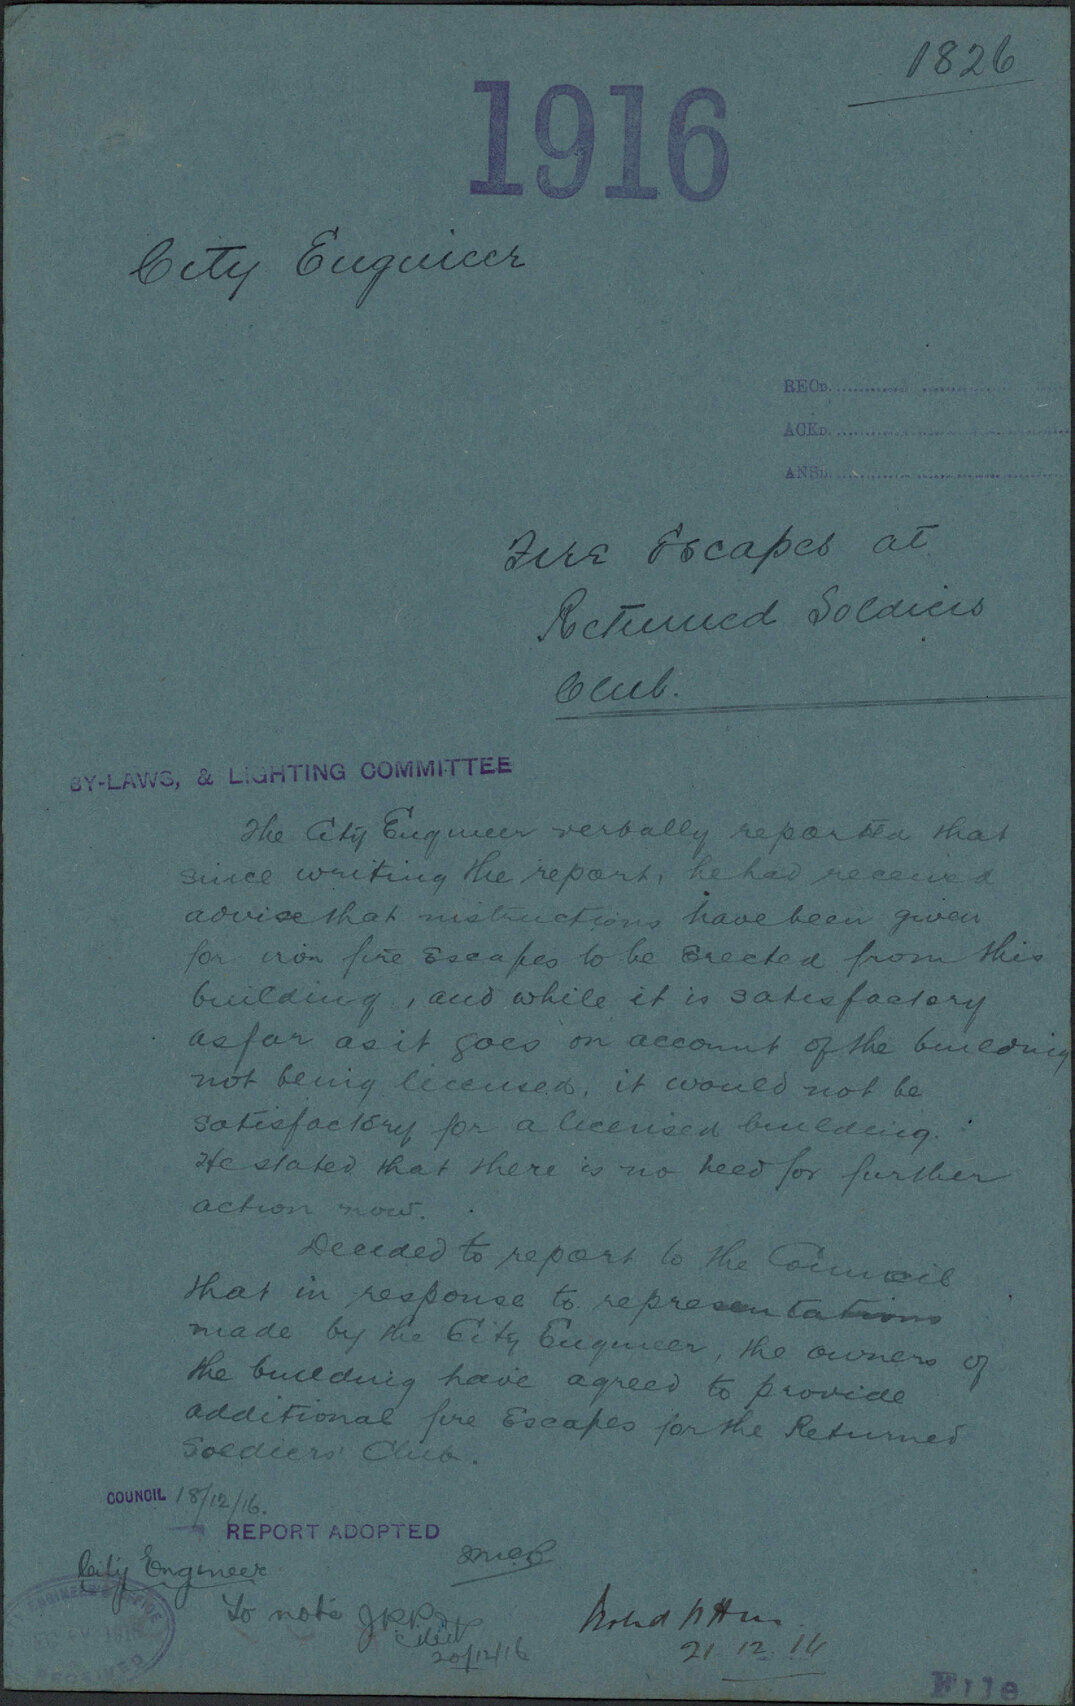 1826
1916
City Engineer
RECD.
ACKD.
ANSD.
Fire Escapes at
Returned Soldiers
Club.
BY-LAWS, & LIGHTING COMMITTEE
The City Engineer verbally reported that
since writing the report, he had received
advice that instructions have been given
for iron fire Escapes to be Erected from this
building, and while it is satisfactory
as far as it goes on account of the building
not being licensed, it would not be
satisfactory for a licensed building.
He stated that there is no need for further
action now.
Decided to report to the Council
that in response to representations
made by the City Engineer, the owners of
the building have agreed to provide
additional fire Escapes for the Returned
Soldiers' Club.
COUNCIL 18/12/16.
REPORT ADOPTED
City Engineer
To note
20/12/16
Noted
21.12.16
ENGINEER'S OFFICE
RECEIVED
File